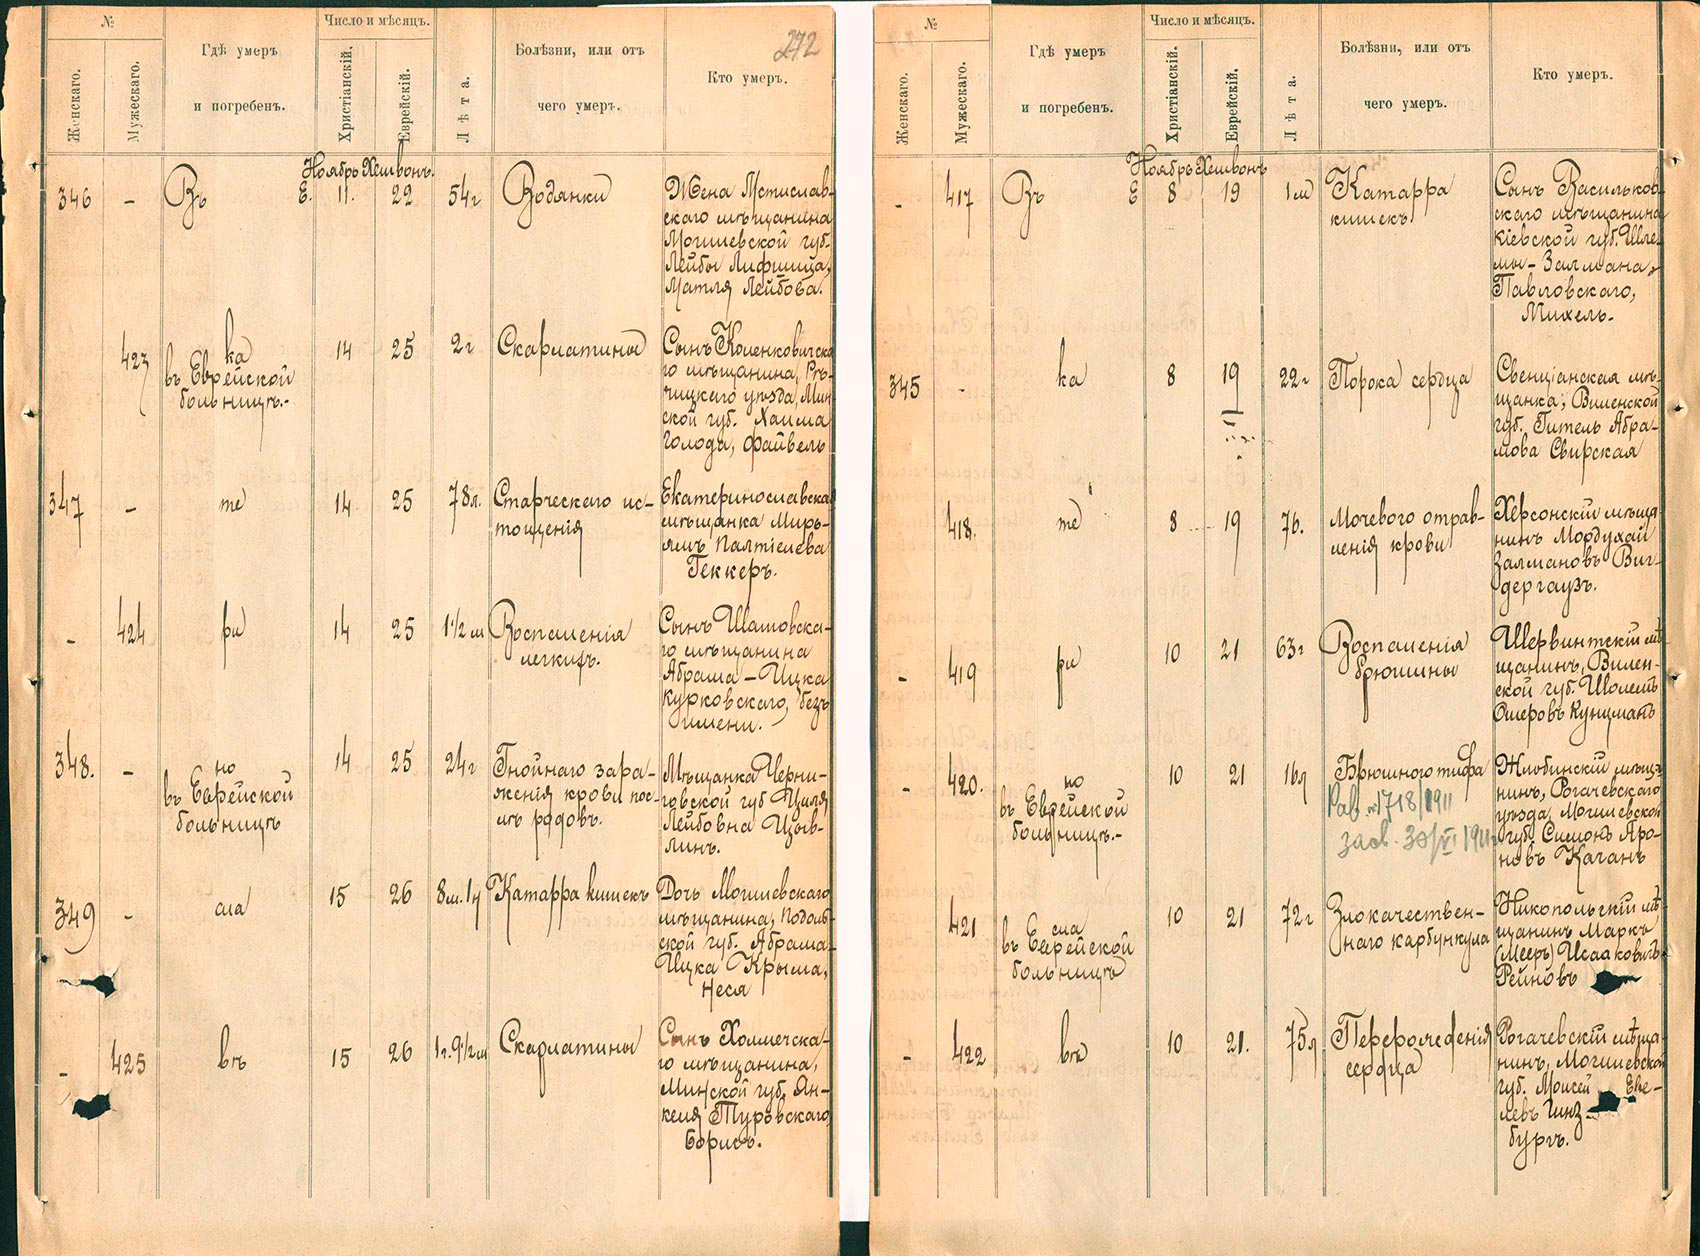 №
Число и мѣсяцъ.
272
Женскаго.
Мужескаго.
Гдѣ умеръ
и погребенъ.
Христіанскій.
Еврейскій.
Лѣта.
Болѣзни, или отъ
чего умеръ.
Кто умеръ.
Ноябрь Хешвонъ.
346 - Въ Е. 11. 22 54г Водянки
Жена Мстислав-
скаго мѣщанина
Могилевской губ.
Лейбы Лифшица,
Матля Лейбова.
423 ка 14 25 2г Скарлатины
въ Еврейской
больницѣ.-
Сынъ Коленковичска
го мѣщанина, Рѣ-
чицкаго уѣзда, Мин
ской губ. Хаима
Голода, Файвель
347 - те 14 25 78л. Старческаго ис-
тощенія
Екатеринославская
мѣщанка Мирь-
ямъ Палтіелева
Геккеръ.
- 424 ри 14 25 1½ м Воспаленія
легкихъ.
Сынъ Шатовска-
го мѣщанина
Абрама-Ицка
Курковскаго, безъ
имени.
348. - но 14 25 24г Гнойнаго зара-
въ Еврейской
больницѣ
женія крови пос-
лѣ родовъ.
Мѣщанка Черни-
говской губ Циля
Лейбовна Цыв-
линъ.
349 - сла 15 26 8м.1н Катарра кишекъ
Дочь Могилевскаго
мѣщанина, Подоль-
ской губ. Абрама-
Ицка Крыма,
Неся
- 425 въ 15 26 1г.9½м Скарлатины
Сынъ Холмечска-
го мѣщанина,
Минской губ. Ян-
келя Туровскаго,
Борисъ.
№
Число и мѣсяцъ.
Женскаго.
Мужескаго.
Гдѣ умеръ
и погребенъ.
Христіанскій.
Еврейскій.
Лѣта.
Болѣзни, или отъ
чего умеръ.
Кто умеръ.
Ноябрь Хешвонъ
- 417 Въ Е 8 19 1м Катарра
кишекъ
Сынъ Васильков-
скаго мѣщанина
Кіевской губ. Шле-
мы-Залмана,
Павловскаго,
Михель.
345 - ка 8 19 22г Порока сердца
Свенцянская мѣ-
щанка, Виленской
губ. Гитель Абра-
мова Свирская
418. те 8 19 76. Мочевого отрав-
ленія крови
Херсонскій мѣща
нинъ Мордухай
Залмановъ Виг-
дергаузъ.
- 419 ри 10 21 63г Воспаленія
брюшины
Ширвинтскій мѣ
щанинъ, Вилен-
ской губ. Шолемъ
Ошеровъ Кунцманъ
- 420. но 10 21 16л Брюшного тифа
въ Еврейской
больницѣ.-
1718/1911
засв. 30/VI 1911г
Жлобинскій мѣща
нинъ, Рогачевскаго
уѣзда, Могилевской
губ. Симонъ Аро-
новъ Каганъ
421 сла 10 21 72г Злокачествен-
въ Еврейской
больницѣ
наго карбункула
Никопольскій мѣ
щанинъ Маркъ
(Мееръ) Исааковичъ
Рейновъ
- 422 въ 10 21. 75л Перерожденія
сердца
Рогачевскій мѣща-
нинъ, Могилевской
губ. Моисей Еве-
левъ Гинз-
бургъ.